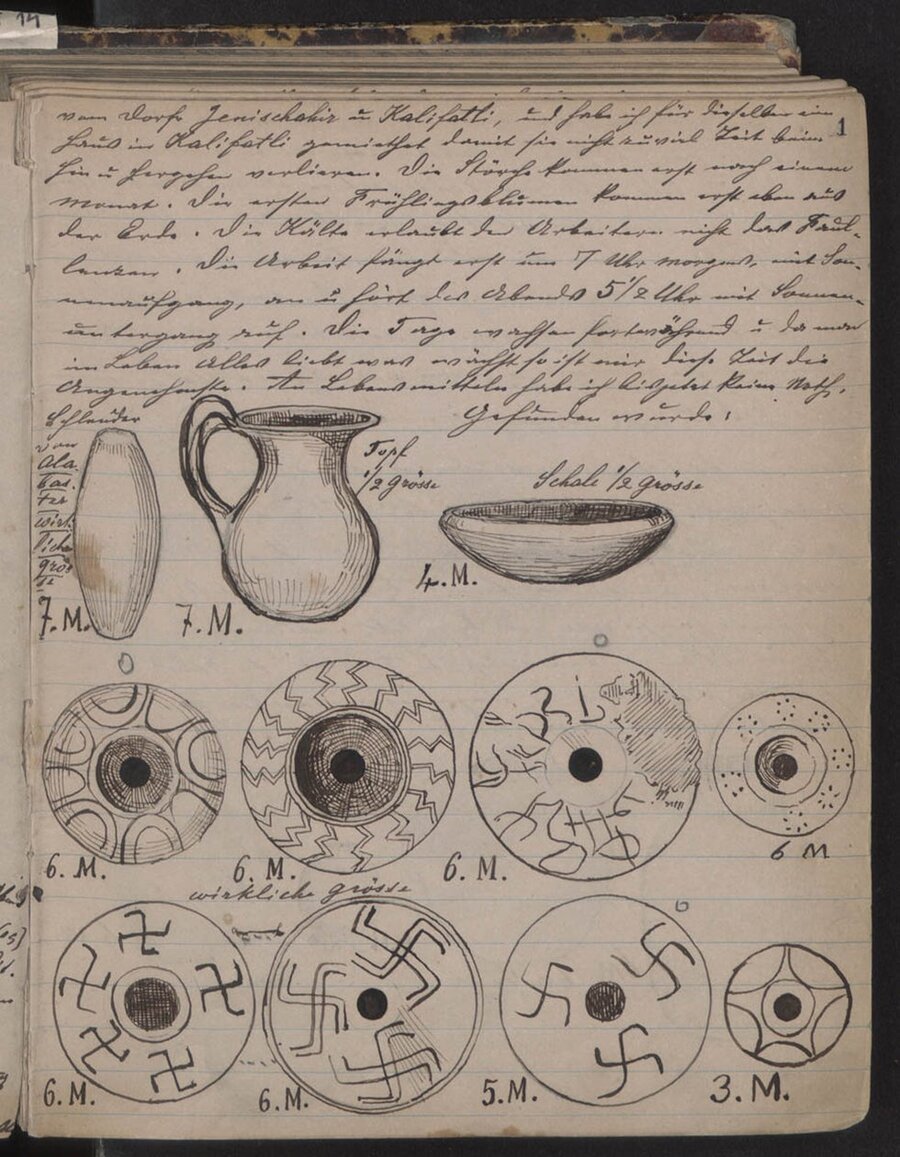 14
1
vom Dorfe Jenischahir u Kalifatli, und habe ich für dieselben ein
Haus in Kalifatli gemiethet damit sie nicht zuviel Zeit beim
Hin u Hergehen verlieren. Die Störche kommen erst nach einem
Monat. Die ersten Frühlingsblumen kommen erst eben aus
der Erde. Die Kälte erlaubt den Arbeitern nicht das Faul-
lenzen. Die Arbeit fängt erst um 7 Uhr morgens, mit Son-
nenaufgang, an u hört des Abends 5 1/2 Uhr mit Sonnen-
untergang auf. Die Tage wachsen fortwährend u da man
im Leben Alles liebt was wächst so ist mir diese Zeit die
Angenehmste. An Lebensmitteln habe ich bis jetzt keine Noth.
Gefunden wurde:
Schleuder
von
Ala
bas
ter
wirk
liche
grös
se
7. M.
Topf
1/2 grösse
7. M.
Schale 1/2 grösse
4. M.
6. M.
6. M.
6. M.
6 M
wirkliche grösse
6. M.
6. M.
5. M.
3. M.